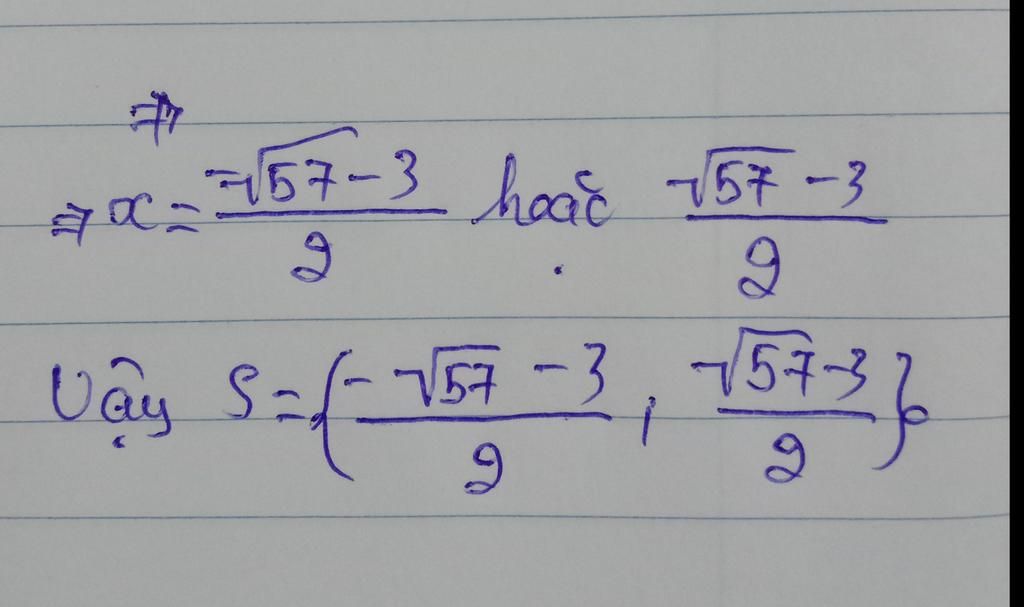 ⇒
⇒ x = (-√57 - 3)/2 hoặc (√57 - 3)/2
Vậy S = {(-√57 - 3)/2, (√57 - 3)/2}.